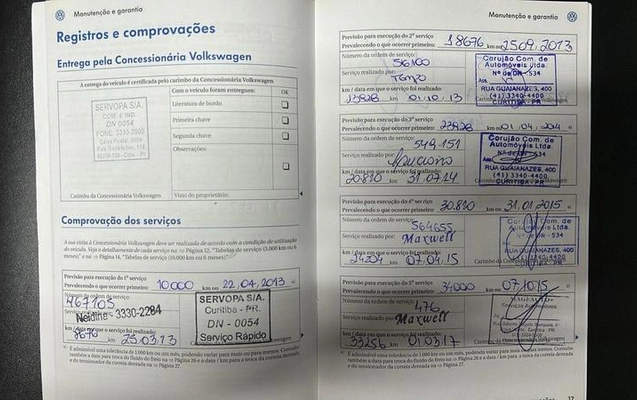 Manutenção e garantia
Registros e comprovações
Entrega pela Concessionária Volkswagen
A entrega do veículo é certificada pelo carimbo da Concessionária Volkswagen
Com o veículo foram entregues: OK
Literatura de bordo
Primeira chave
Segunda chave
Observações:
SERVOPA S/A.
COM. E IND.
DN - 0054
FONE: 3330-2000
Carimbo da Concessionária Volkswagen
Visto do proprietário:
Comprovação dos serviços
A sua visita à Concessionária Volkswagen deve ser realizada de acordo com a condição de utilização
do veículo. Veja o detalhamento de cada serviço na ⇒ Página 12, "Tabelas de serviço (5.000 km ou 6
meses)" e na ⇒ Página 14, "Tabelas de serviço (10.000 km ou 6 meses)".
Previsão para execução do 1º serviço 10000 km ou 22.04.2013
467105
Neidine 3330-2284
km / data em que o serviço foi realizado:
8676 km 25.03.13
SERVOPA S/A.
Curitiba - PR.
DN - 0054
Serviço Rápido
a) É admissível uma tolerância de 1.000 km ou um mês, podendo variar para mais ou para menos. Consulte
também a data para troca do fluido de freio na ⇒ Página 26 e a data e/ou km para a troca da correia dentada
e do tensionador da correia dentada na ⇒ Página 27.
Manutenção e garantia
Previsão para execução do 2º serviço
Prevalecendo o que ocorrer primeiro: 18676 km ou 25.09.2013
Número da ordem de serviço:
56100
Serviço realizado por:
km / data em que o serviço foi realizado:
13828 km 01.10.13
Corujão Com. de
Automóveis Ltda.
Nº de DN - 534
RUA GUAIANAZES, 400
(41) 3340-4400
CURITIBA - PR
Previsão para execução do 3º serviço
Prevalecendo o que ocorrer primeiro: 23828 km ou 01.04.2014
Número da ordem de serviço:
549.151
Serviço realizado por:
km / data em que o serviço foi realizado:
20.810 km 31.07.14
Corujão Com. de
Automóveis Ltda.
Nº de DN - 534
RUA GUAIANAZES, 400
(41) 3340-4400
CURITIBA - PR
Previsão para execução do 4º serviço
Prevalecendo o que ocorrer primeiro: 30.810 km ou 31.01.2015
Número da ordem de serviço:
564655
Serviço realizado por: Maxwell
km / data em que o serviço foi realizado:
24204 km 07.04.15
Corujão Com. de
Automóveis Ltda.
DN - 534
RUA GUAIANAZES, 400
Previsão para execução do 5º serviço
Prevalecendo o que ocorrer primeiro: 34000 km ou 07.10.15
Número da ordem de serviço:
476
Serviço realizado por: Maxwell
km / data em que o serviço foi realizado:
33256 km 01.03.17
a) É admissível uma tolerância de 1.000 km ou um mês, podendo variar para mais ou para menos. Consulte
também a data para troca do fluido de freio na ⇒ Página 26 e a data e/ou km para a troca da correia dentada
e do tensionador da correia dentada na ⇒ Página 27.
17